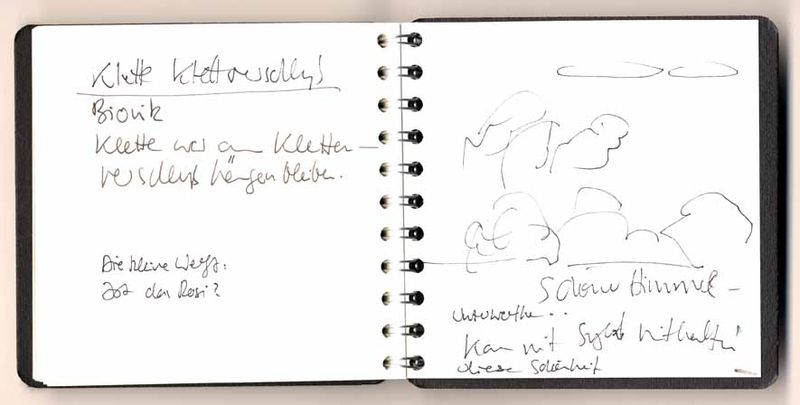 Klette Klettverschluß
Bionik
Klette war am Kletten-
verschluß hängen bleiben.
Die kleine
Ist das Rosi?
Schöner Himmel -
Kann mit
diese Schönheit